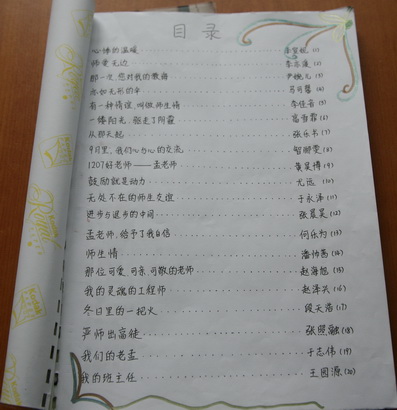 目录
心怀的温暖 李贺彬 (1)
师爱无边 李乐康 (2)
那一次,您对我的教诲 尹婉儿 (3)
亦如无形的伞 (4)
有一种情谊,叫做师生情 李佳音 (5)
一缕阳光,驱走了阴霾 高雪霏 (6)
从那天起 张乐书 (7)
9月里,我们心与心的交流 (8)
1207好老师——孟老师 黄昊博 (9)
鼓励就是动力 尤远 (10)
无处不在的师生交谊 于永泽 (11)
进步与退步的中间 张昊昊 (12)
孟老师,给予了我自信 何乐为 (13)
师生情 潘帅茜 (14)
那位可爱、可亲、可敬的老师 赵海旭 (15)
我的灵魂的工程师 赵泽兴 (16)
冬日里的一把火 段天浩 (17)
严师出高徒 张照融 (18)
我们的老孟 于志伟 (19)
我的班主任 王园源 (20)